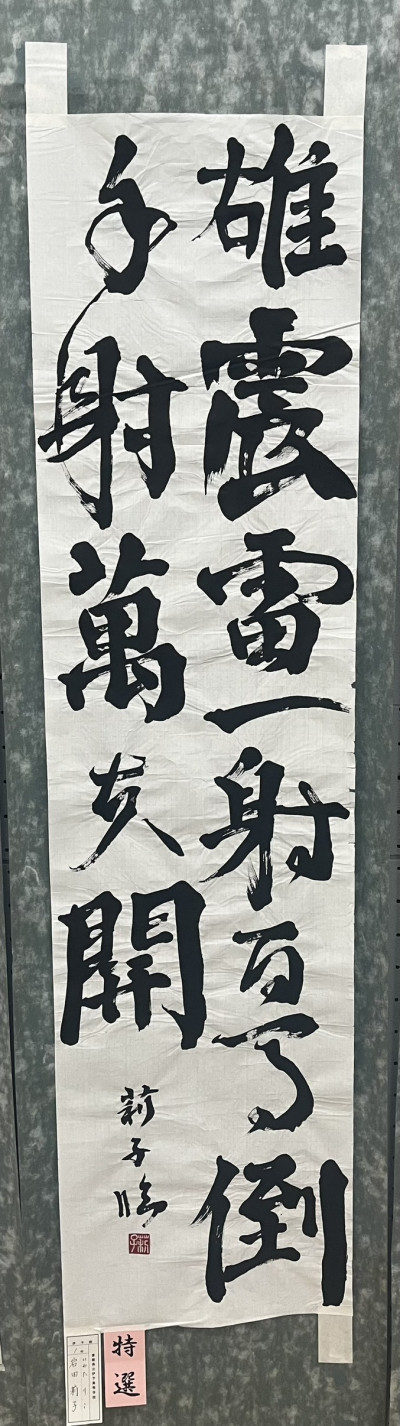 雄震雷一射百馬倒
再射萬夫開
莉子臨
特選
岩田 莉子